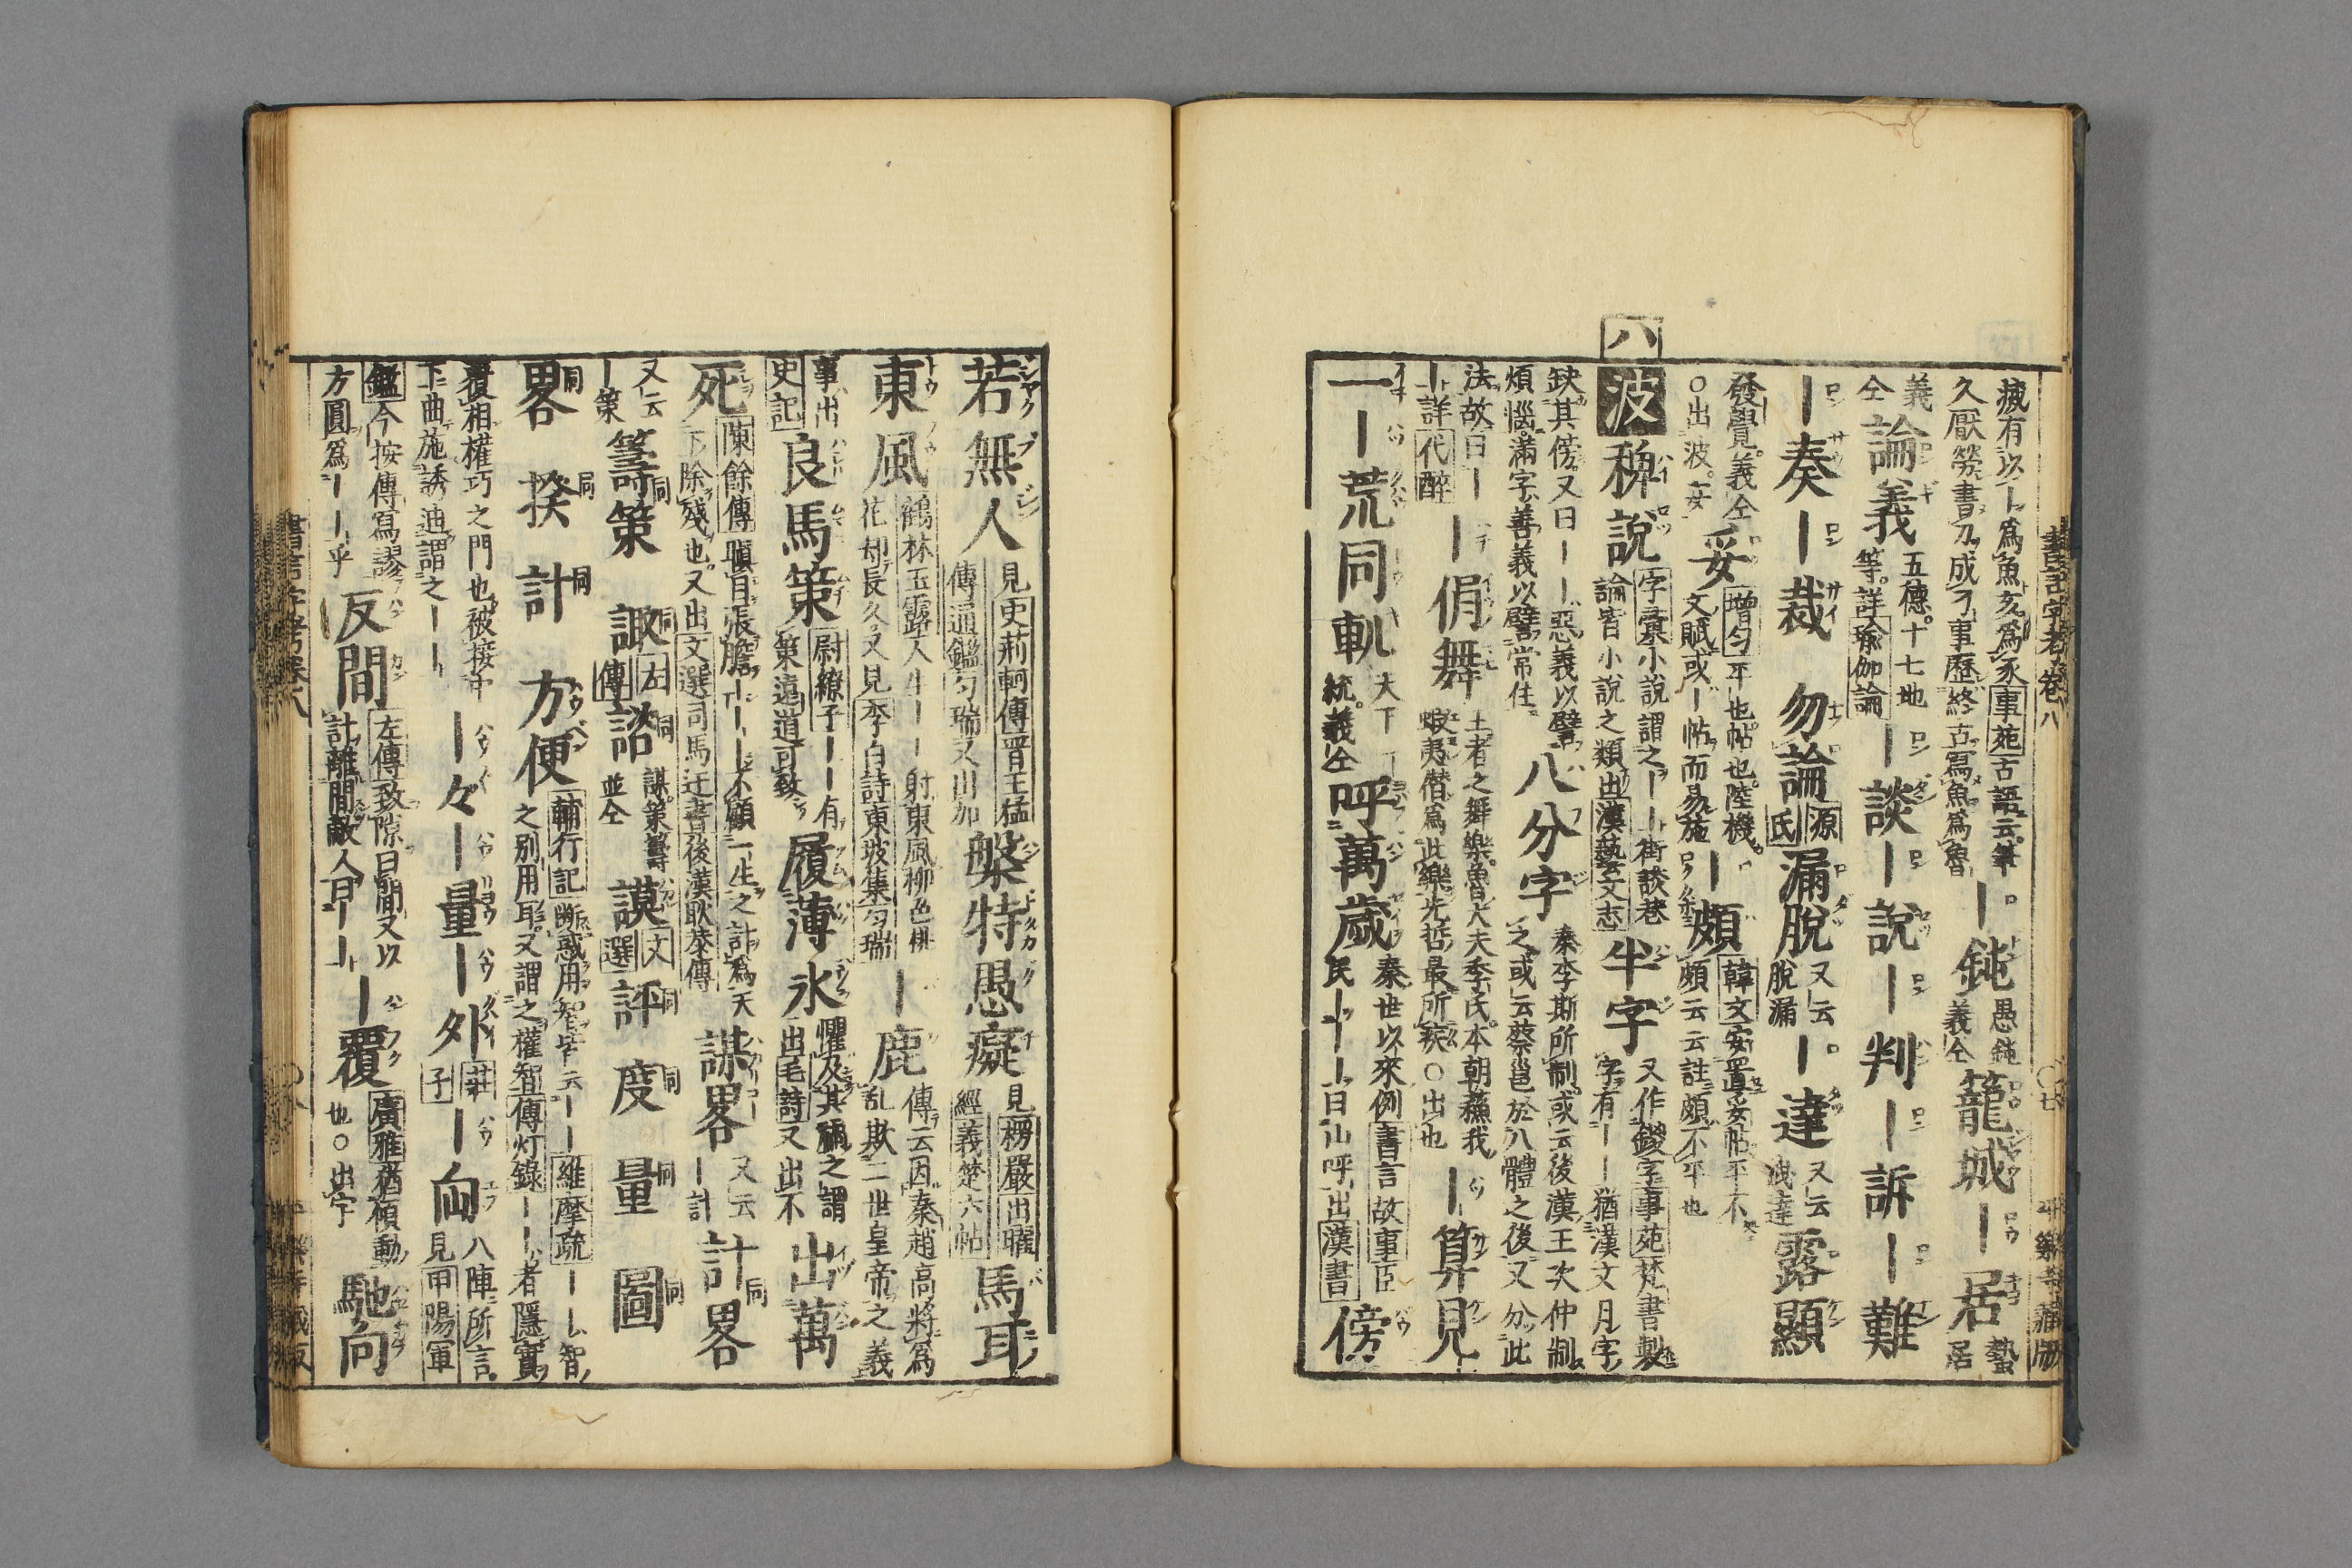 書言字考卷八
平樂寺藏版
久厭勞書刀成了事歷終立寫魚爲魯
藏有以丨爲魚亥爲豕事苑古語云筆
丨鈍愚鈍義仝籠城丨居蟄居
仝論義五德十七地等詳瑜伽論丨談丨說丨判丨訴丨難
丨奏丨裁勿論源氏漏脫又云脫漏丨達又云洩達露顯
發覺義仝○出波妥增匀平也帖也陸機文賦或丨帖而易施丨頗韓文妥置妥帖平不頗云云註頗不平也
ハ
波稗說字彙小說謂之丨丨街談巷論皆小說之類出漢藝文志半字又作鍐字事苑梵書製字有丨丨猶漢文月字
缺其傍又曰丨丨惡義以譬煩惱滿字善義以譬常住八分字秦李斯所制或云後漢王次仲制之或云蔡邕於八體之後又分此
法故曰丨丨詳代醉丨佾舞王者之舞樂魯大夫季氏本朝蘇我蝦夷僣爲此樂先哲最所疾○出也丨算見
一丨荒同軌大下丨統義仝呼萬歲秦世以來例書言故事臣民丨丨丨曰山呼出漢書傍
若無人見史荊軻傳晋王猛傳通鑑匀瑞又出加槃特愚癡見楞嚴出曜經義楚六帖馬耳
東風鶴林玉露人生丨丨射東風柳色桃花却長久又見李白詩東坡集匀瑞丨鹿傳云因秦趙高將爲亂欺二世皇帝之義
事出史記良馬策尉繚子丨丨有策遠道可致履薄氷懼及其禍之謂出毛詩又出不出萬
死陳餘傳瞋目張膽丨丨丨不顧一生之計爲天下除殘也又出文選司馬迁書後漢耿恭傳謀畧又云丨計計畧
又云丨策籌策諏左傳諮謀策籌並仝謨文選評度量圖
畧揆計方便輔行記斷惑用智皆云丨丨維摩疏丨丨智之別用耳又謂之權智傳灯錄丨丨者隱實
覆相權巧之門也被接中下曲施誘迪謂之丨丨丨々丨量丨外莊子丨向八陣所言見甲陽軍
鑑今按傳寫謬方圓爲丨丨乎反間左傳致隙曰間又以計離間敵人曰丨丨丨覆廣雅猶傾動也○出宇馳向
書言字考卷八
平樂寺藏版